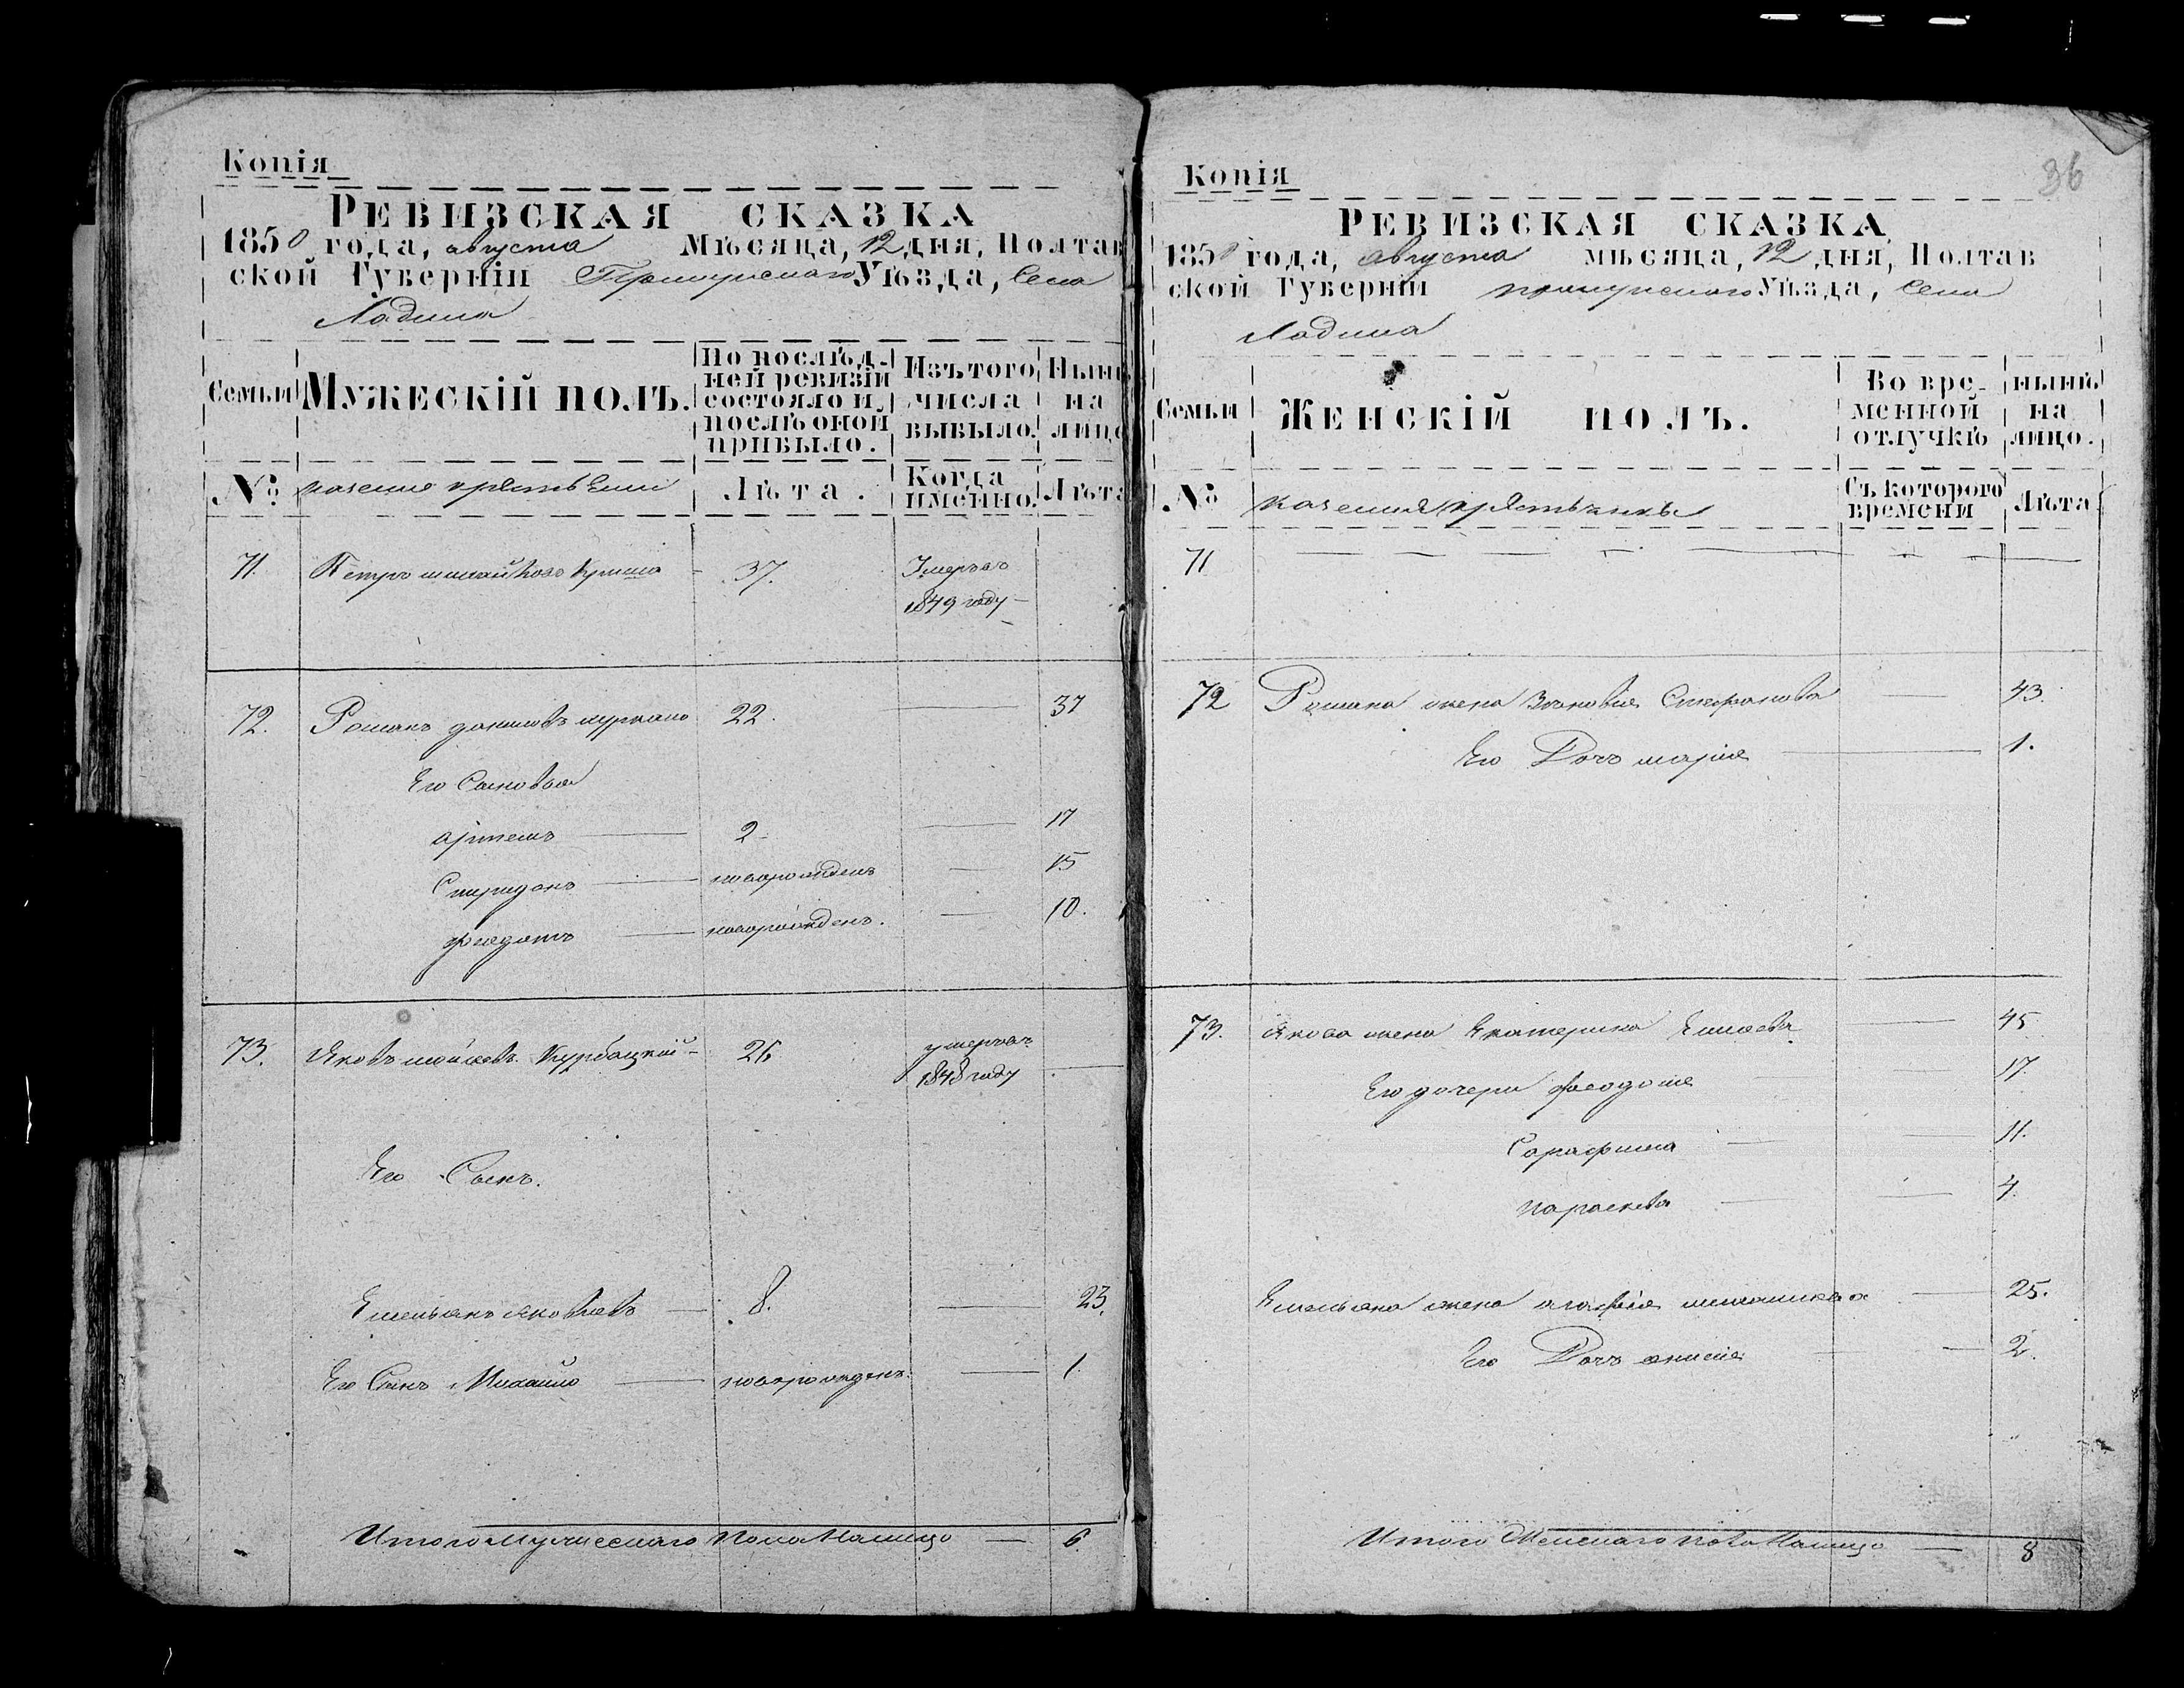 Копія
РЕВИЗСКАЯ СКАЗКА
1850 года, августа Мѣсяца, 12 дня, Полтав
ской Губерніи Прилуцкаго Уѣзда, Села
Ладина
Семьи
МУЖЕСКІЙ ПОЛЪ.
По послѣд-
ней ревизіи
состояло и
послѣ оной
прибыло.
Изъ того
числа
выбыло.
Нынѣ
на
лицо
№
казенные крестьяне
Лѣта.
Когда
именно.
Лѣта
71. Петръ 37. Умеръ въ
1849 году
72. Романъ 22. 37
Его Сыновья
артемъ 2 17
Спиридонъ новорожденъ 15
феодотъ новорожденъ. 10.
73. Яковъ Курбацкій 26 умеръ въ
1848 году
Его Сынъ.
Емельянъ Яковлевъ 8. 23.
Его Сынъ Михайло новорожденъ. 1
Итого мужескаго пола На лицо 6
Копія
36
РЕВИЗСКАЯ СКАЗКА
1850 года, августа мѣсяца, 12 дня, Полтав
ской Губерніи прилуцкаго Уѣзда, Села
Ладина
Семьи
ЖЕНСКІЙ ПОЛЪ.
Во вре-
менной
отлучкѣ
нынѣ
на
лицо.
№
казенныя крестьянки
Съ котораго
времени
Лѣта
71
72 Романа жена Зѣновія Стефанова 43.
Его Дочь марія 1.
73. Якова жена Екатерина 45
Его дочери феодосія 17.
Сарафима 11.
параскева 4.
Емельяна жена агафія 25.
Его Дочь анисія 2.
Итого Женскаго пола На лицо 8